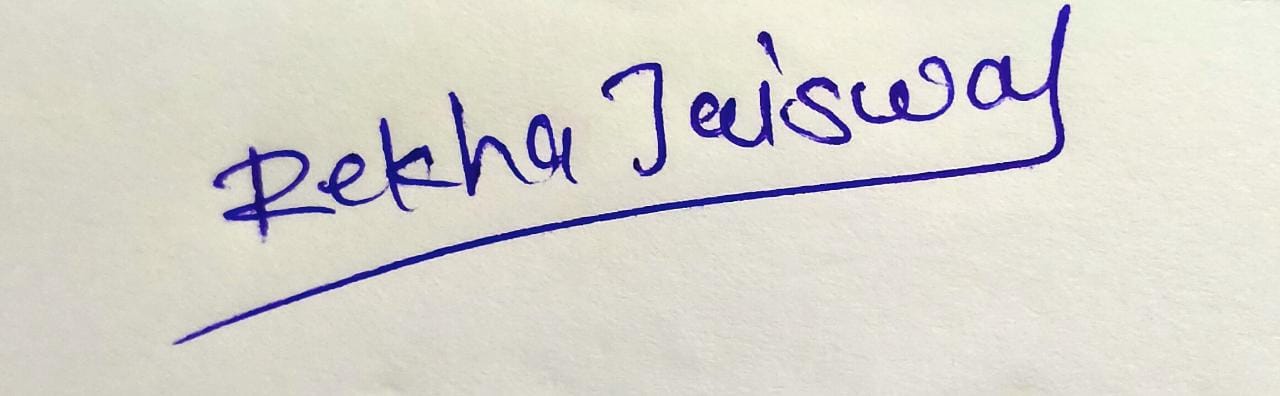 Rekha Jaiswal